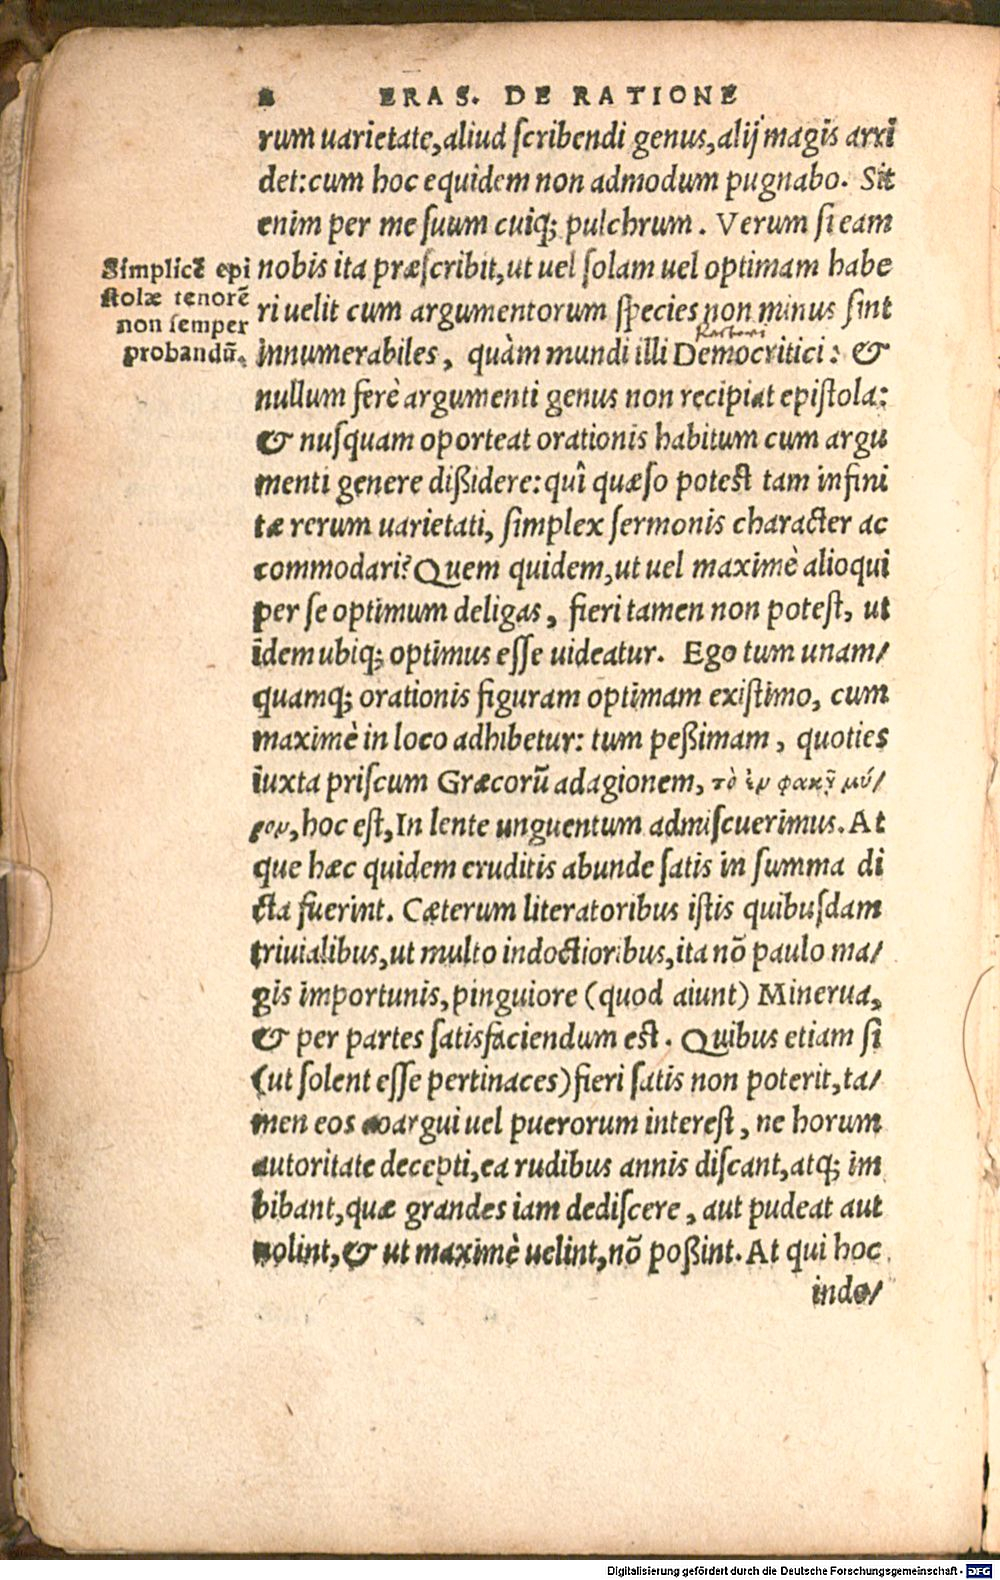 8 ERAS. DE RATIONE
rum uarietate, aliud ſcribendi genus, alij magis arri
det: cum hoc equidem non admodum pugnabo. Sit
enim per me ſuum cuiq; pulchrum. Verum ſi eam
nobis ita præſcribit, ut uel ſolam uel optimam habe
ri uelit cum argumentorum ſpecies non minus ſint
innumerabiles, quàm mundi illi Democritici: &
nullum ferè argumenti genus non recipiat epiſtola:
& nuſquam oporteat orationis habitum cum argu
menti genere dißidere: quî quæſo poteſt tam infini
tæ rerum uarietati, ſimplex ſermonis character ac
commodari? Quem quidem, ut uel maximè alioqui
per ſe optimum deligas, fieri tamen non poteſt, ut
idem ubiq; optimus eſſe uideatur. Ego tum unam/
quamq; orationis figuram optimam exiſtimo, cum
maximè in loco adhibetur: tum peßimam, quoties
iuxta priſcum Græcorũ adagionem, τὸ ἐν φακῇ μύ/
ρον, hoc eſt, In lente unguentum admiſcuerimus. At
que hæc quidem eruditis abunde ſatis in ſumma di
cta fuerint. Cæterum literatoribus iſtis quibuſdam
triuialibus, ut multo indoctioribus, ita nõ paulo ma/
gis importunis, pinguiore (quod aiunt) Minerua,
& per partes ſatisfaciendum eſt. Quibus etiam ſi
(ut ſolent eſſe pertinaces) fieri ſatis non poterit, ta/
men eos coargui uel puerorum intereſt, ne horum
autoritate decepti, ea rudibus annis diſcant, atq; im
bibant, quæ grandes iam dediſcere, aut pudeat aut
nolint, & ut maximè uelint, nõ poßint. At qui hoc
indo/
Simplicẽ epi
ſtolæ tenorẽ
non ſemper
probandũ.
Digitalisierung gefördert durch die Deutsche Forschungsgemeinschaft - DFG